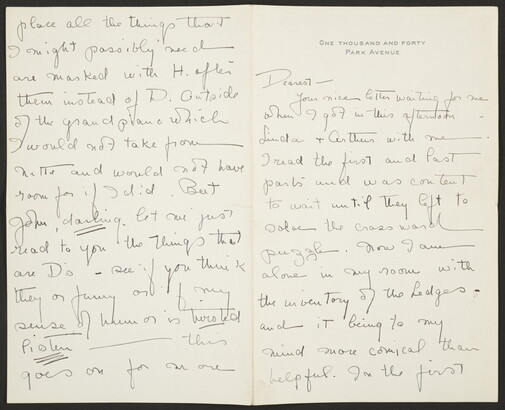 ONE THOUSAND AND FORTY
PARK AVENUE
Dearest —
Your nice letter waiting for me
when I got in this afternoon -
Linda & Arthur with me
I read the first and last
parts and was content
to wait until they left to
solve the crossword
puzzle. Now I am
alone in my room with
the inventory of the Ledges -
and it being to my
mind more comical than
helpful. In the first
place all the things that
I might possibly need
are marked with H. after
them instead of D. Outside
of the grand piano which
I would not take from
and would not have
room for if I did. But
John, darling. let me just
read to you the things that
are D's - see if you think
they are funny or if my
sense of humor is twisted
Listen — this
goes on for